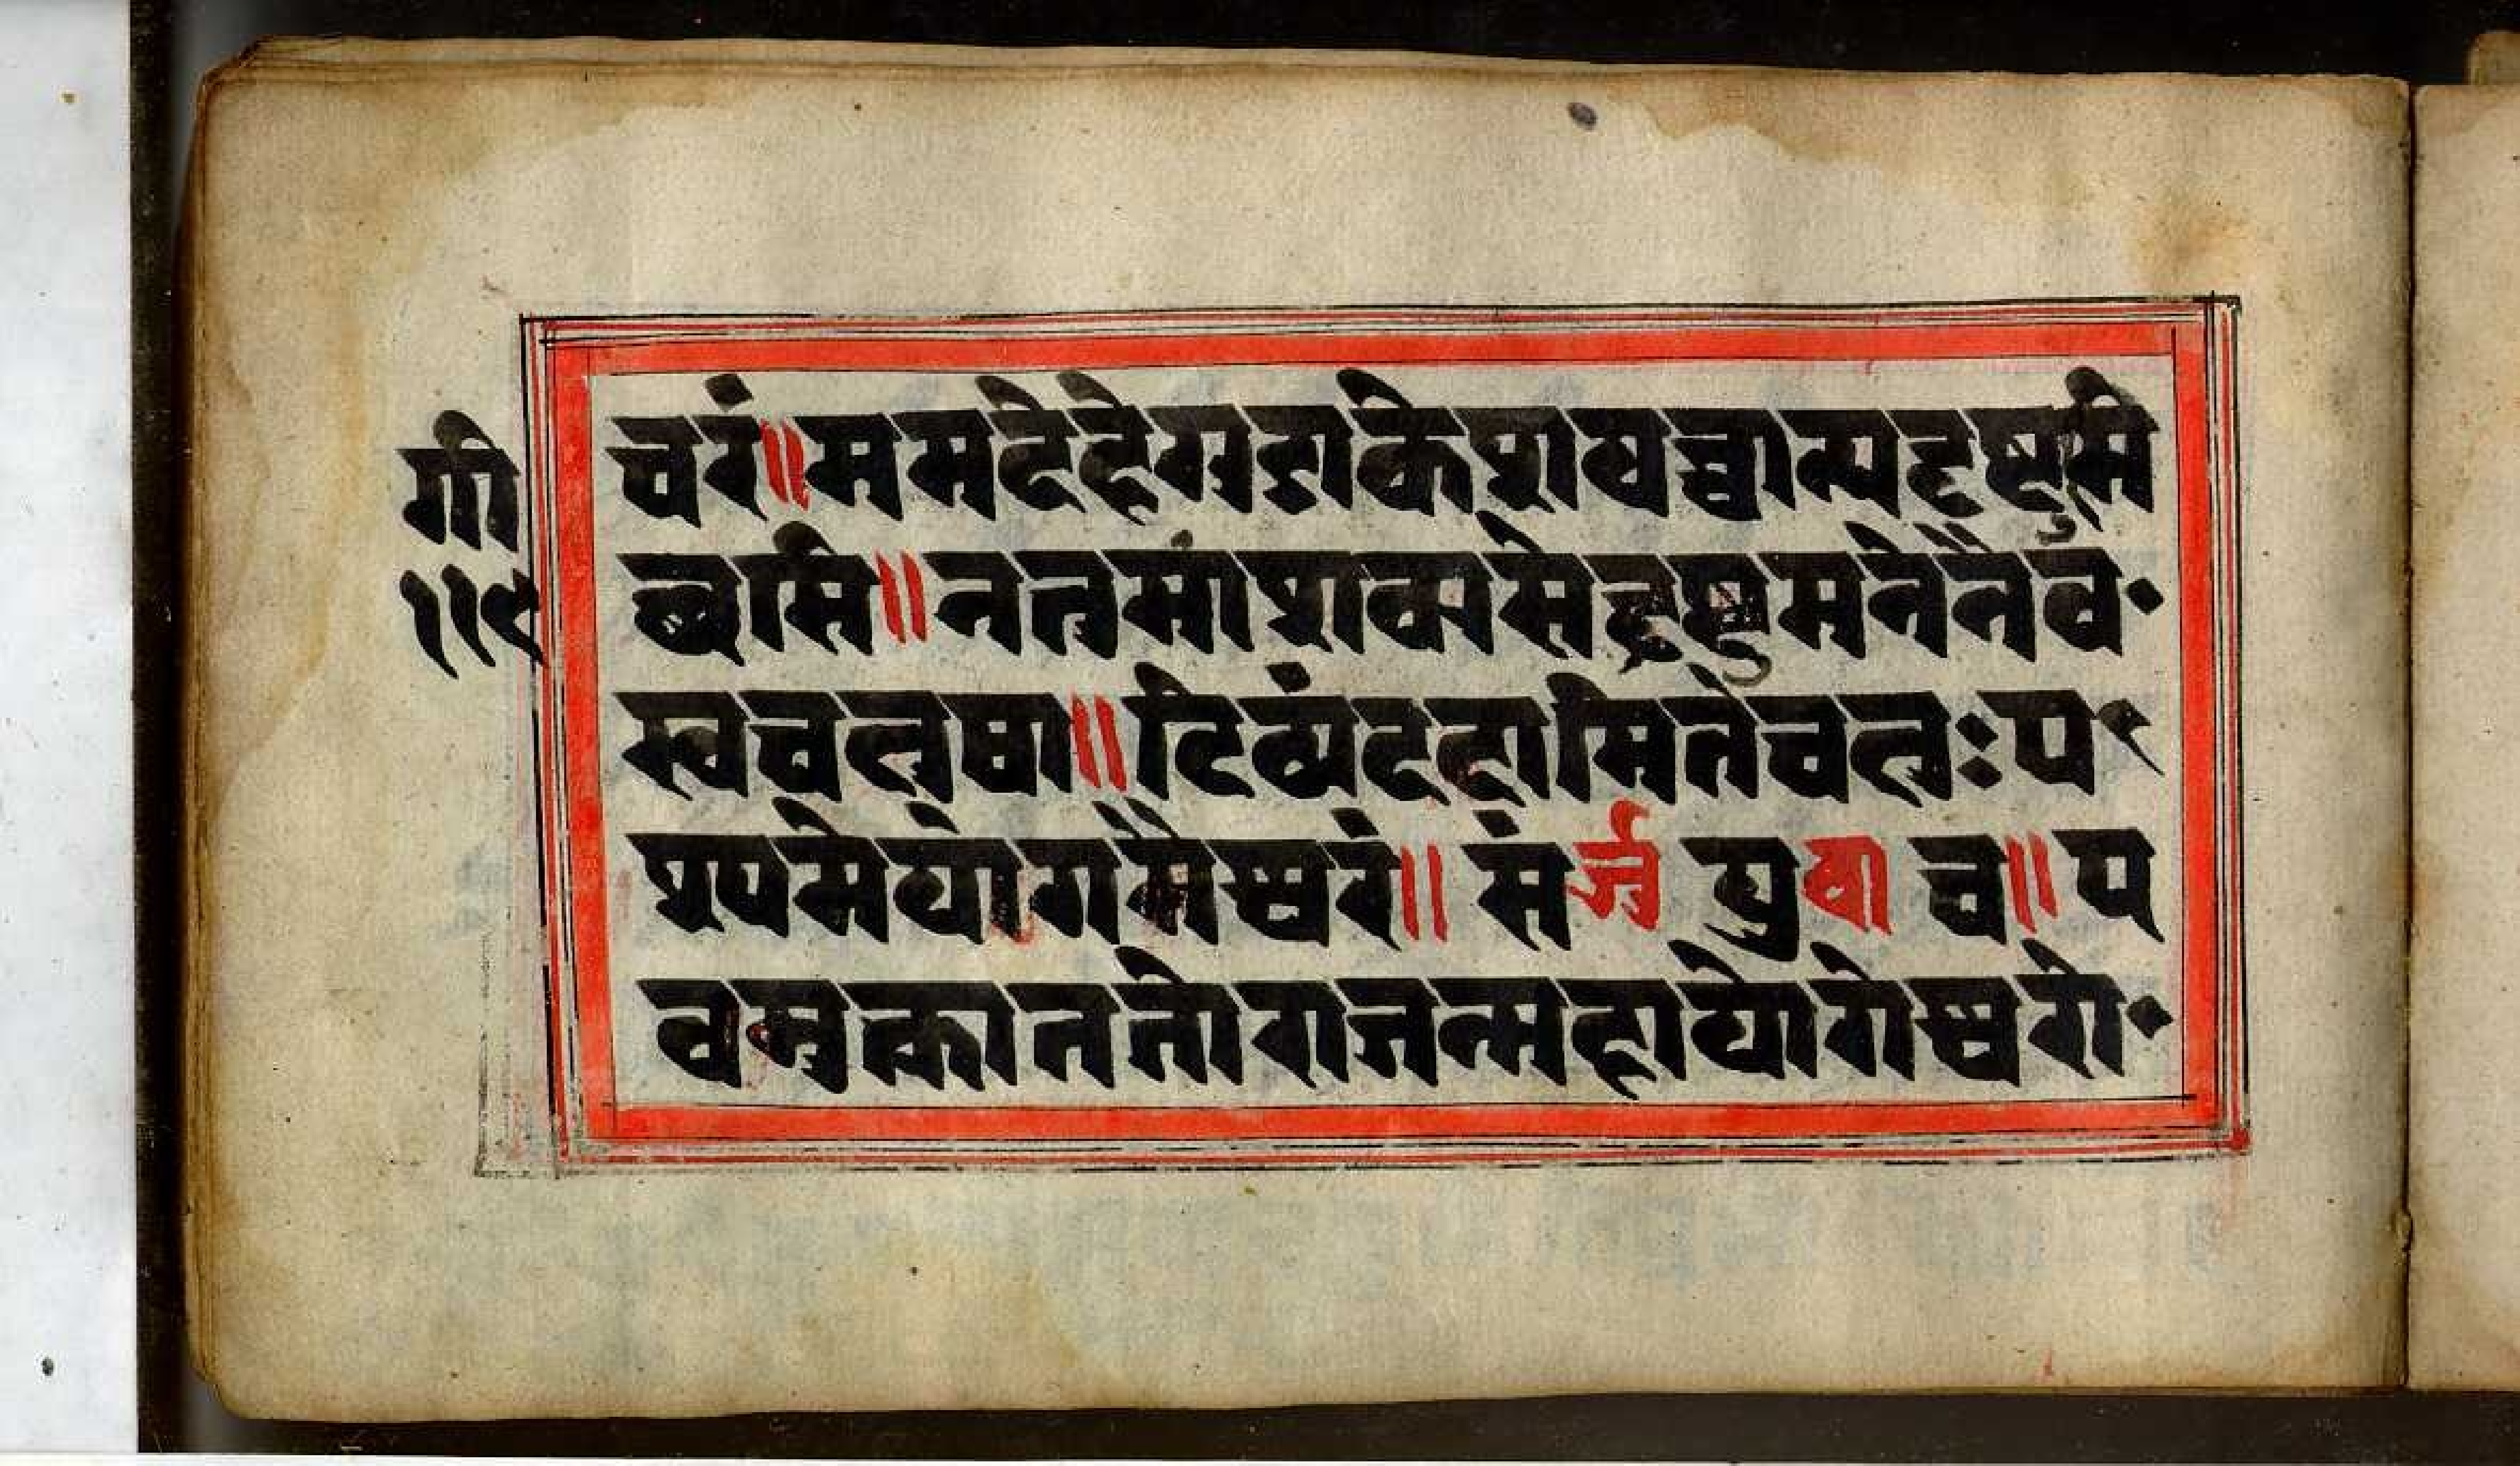 गी
११९
चरं॥ममदेहेगुडाकेशयच्चान्यदृष्टुमि
छसि॥नतुमांशक्यसेद्रष्टुमनेनैव
स्वचक्षुषा॥दिव्यंददामितेचक्षुःप
श्यमेयोगमैश्वरं॥संर्ज्जयुवाच॥ए
वमुक्तातुतोराजन्महायोगेश्वरो